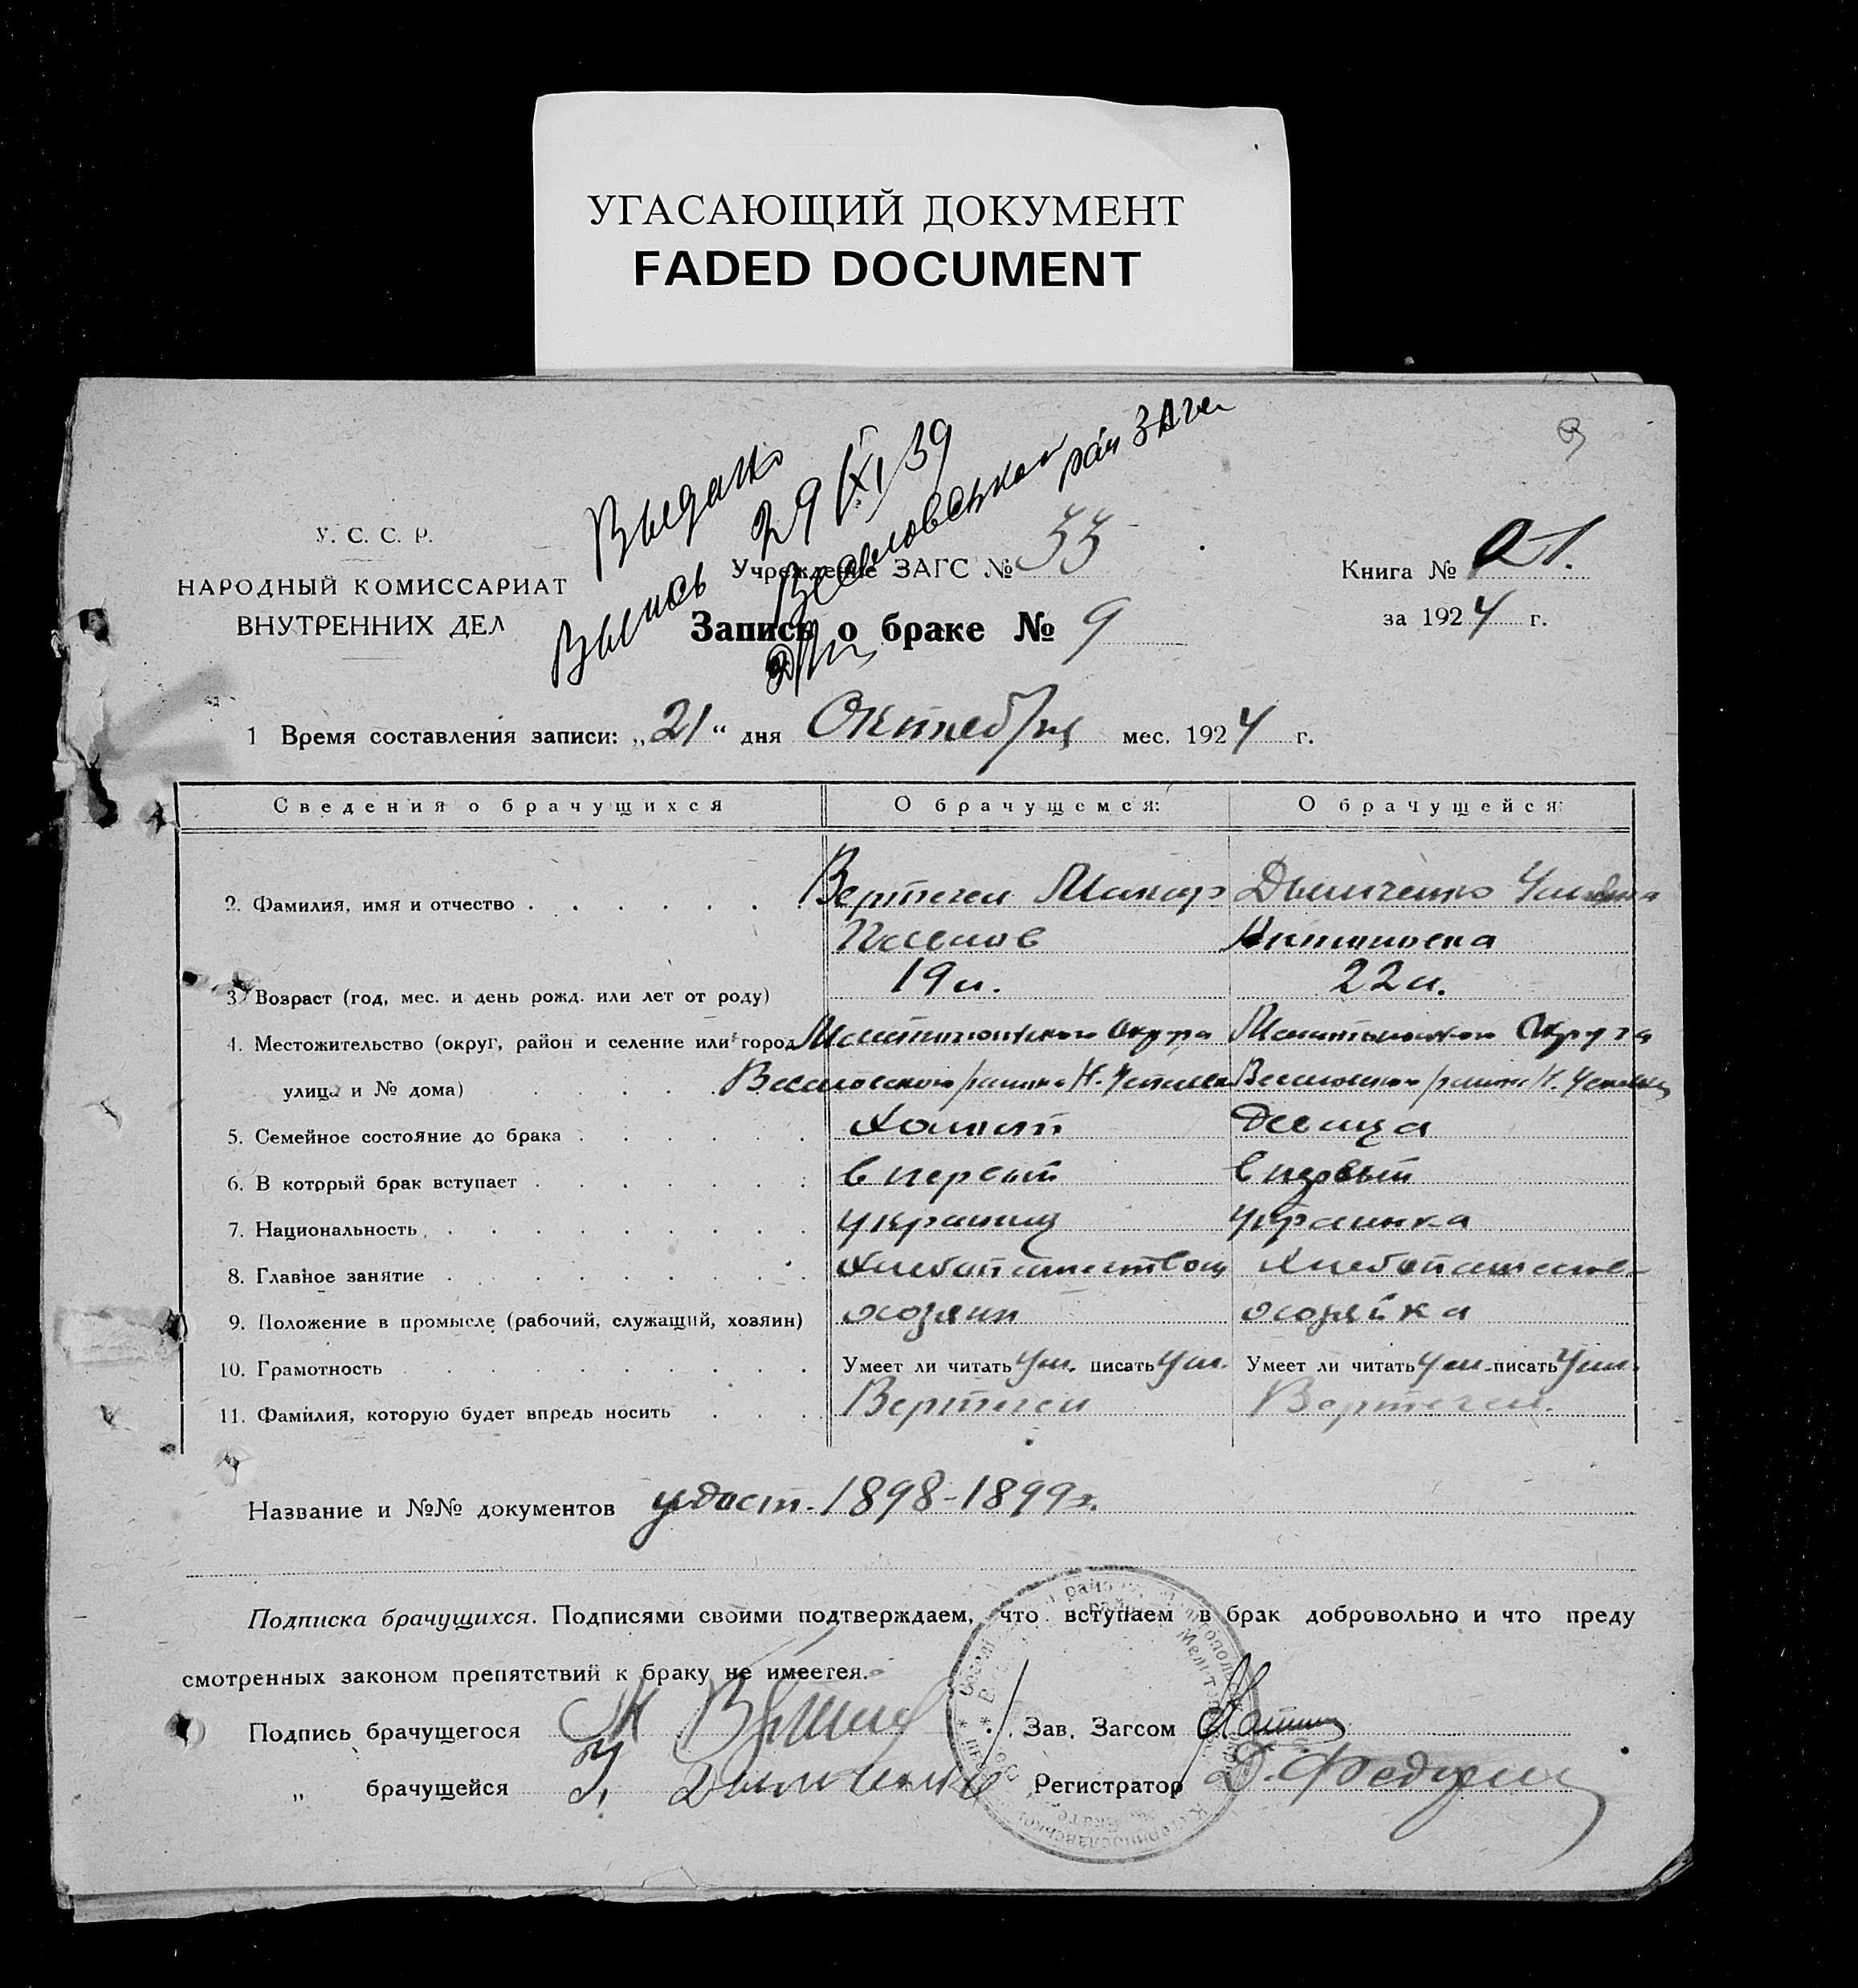 УГАСАЮЩИЙ ДОКУМЕНТ
FADED DOCUMENT
Выдано
29/XI/39
Веселовський рай ЗАГС
У. С. С. Р.
НАРОДНЫЙ КОМИССАРИАТ
ВНУТРЕННИХ ДЕЛ
Учреждение ЗАГС № 33
Запись о браке № 9
Книга №
за 1924 г.
1 Время составления записи: „21“ дня Октября мес. 1924 г.
Сведения о брачущихся О брачущемся: О брачущейся:
2. Фамилия, имя и отчество . . . . . . . Вертегел Макар Дымченко
Антоновна
3. Возраст (год, мес. и день рожд. или лет от роду) 19 л. 22 л.
4. Местожительство (округ, район и селение или город Мелитопольского Округа Мелитопольского Округа
улица и № дома) . . . . . . Веселовского района Н. Успенка Веселовского района Н. Успенка
5. Семейное состояние до брака . . . . . . Холост Девица
6. В который брак вступает . . . . . . . в первый в первый
7. Национальность . . . . . . . . . украинец украинка
8. Главное занятие . . . . . . . . . Хлебопашество Хлебопашеств
9. Положение в промысле (рабочий, служащий, хозяин) хозяин хозяйка
10. Грамотность . . . . . . . . . Умеет ли читать Ум. писать Ум. Умеет ли читать Ум. писать Ум.
11. Фамилия, которую будет впредь носить . . . Вертегел Вертегел.
Название и №№ документов удост. 1898-1899 г.
Подписка брачущихся. Подписями своими подтверждаем, что вступаем в брак добровольно и что преду
смотренных законом препятствий к браку не имеется.
Подпись брачущегося М Зав. Загсом
„ брачущейся У. Дымченко Регистратор Д.